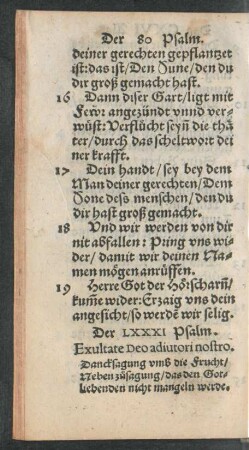 Der 80 Psalm.
deiner gerechten gepflantzet
ist: das ist / Den Sune / den du
dir groß gemacht hast.
16 Dann diser Gart / ligt mit
Fewr angezündt vnnd ver-
wüst: Verflücht seyn die thä-
ter / durch das scheltwort dei-
ner krafft.
17 Dein handt / sey bey dem
Man deiner gerechten / Dem
Sone dess menschen / den du
dir hast groß gemacht.
18 Vnd wir werden von dir
nit abfallen: Pring vns wi-
der / damit wir deinen Na-
men mögen anrüffen.
19 Herre Got der Hörscharn /
kum̃e wider: Erzaig vns dein
angesicht / so werdẽ wir selig.
Der LXXXI Psalm.
Exultate Deo adiutori nostro.
Dancksagung vmb die Frucht /
Neben züsagung / das den Got-
liebenden nicht mangeln werde.